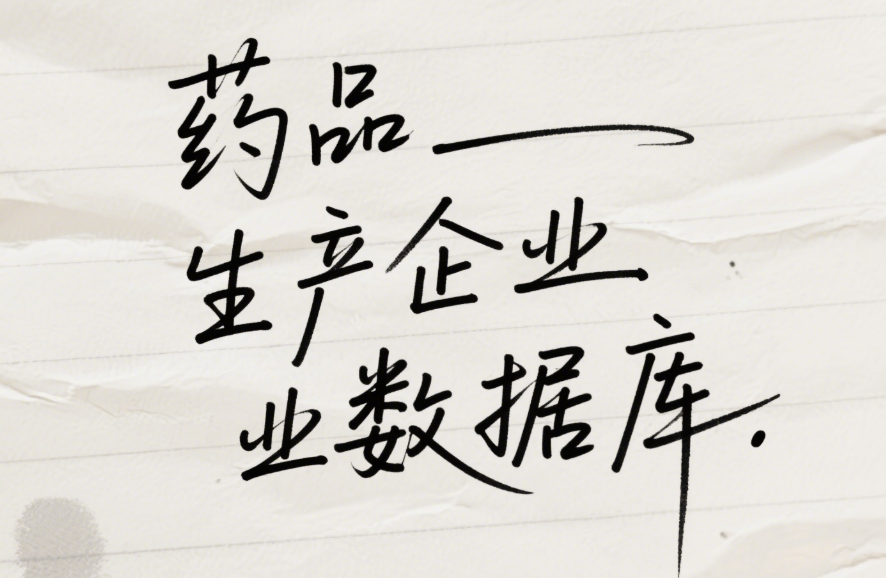 药品——
生产企业
业数据库.